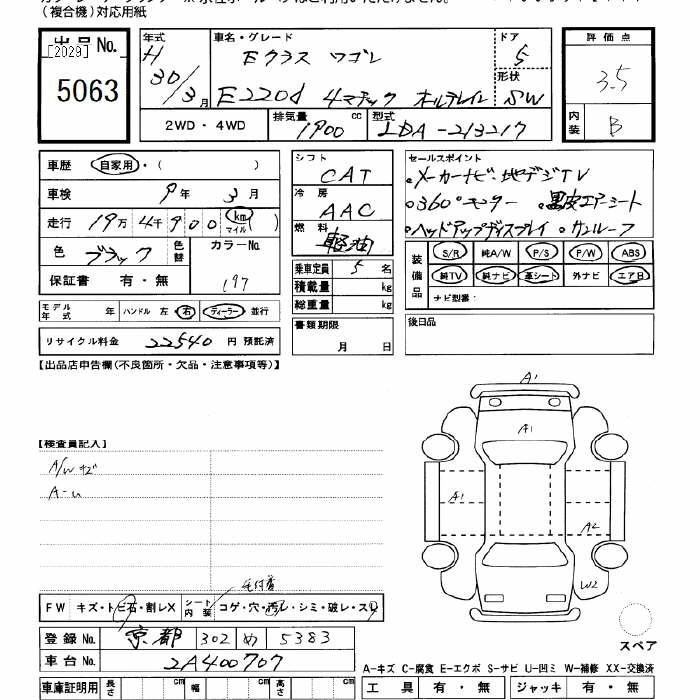 (複合機)対応用紙
出品No.
[2029]
5063
年式
H
30/3月
車名・グレード
Eクラス ワゴン
E220d 4マチック オールテレイン
ドア
5
形状
SW
2WD・4WD
排気量
1900
cc
型式
LDA-213217
評価点
3.5
内装
B
車歴 自家用・( )
車検 9年 3月
走行 19万4千900 km マイル
色 ブラック 色替 カラーNo.
197
保証書 有・無
モデル年式 年 ハンドル 左 右 ディーラー 並行
リサイクル料金 22540 円 預託済
シフト
CAT
冷房
AAC
燃料
軽油
乗車定員 5 名
積載量 kg
総重量 kg
書類期限
月 日
セールスポイント
・メーカーナビ・地デジTV
・360°モニター ・黒皮エアーシート
・ヘッドアップディスプレイ ・サンルーフ
装備品
S/R 純A/W P/S P/W ABS
純TV 純ナビ 革シート 外ナビ エアB
ナビ型番:
後日品
【出品店申告欄(不良箇所・欠品・注意事項等)】
【検査員記入】
A/Wキズ
A-u
A1
A1
A1
A2
W2
スペア
FW キズ・トビ石・割レX シート内装 コゲ・穴・汚レ・シミ・破レ・スレ
登録No. 京都 302 め 5383
車台No. 2A400707
車庫証明用 長さ cm 幅 cm 高さ cm
A-キズ C-腐食 E-エクボ S-サビ U-凹ミ W-補修 XX-交換済
工具 有・無 ジャッキ 有・無